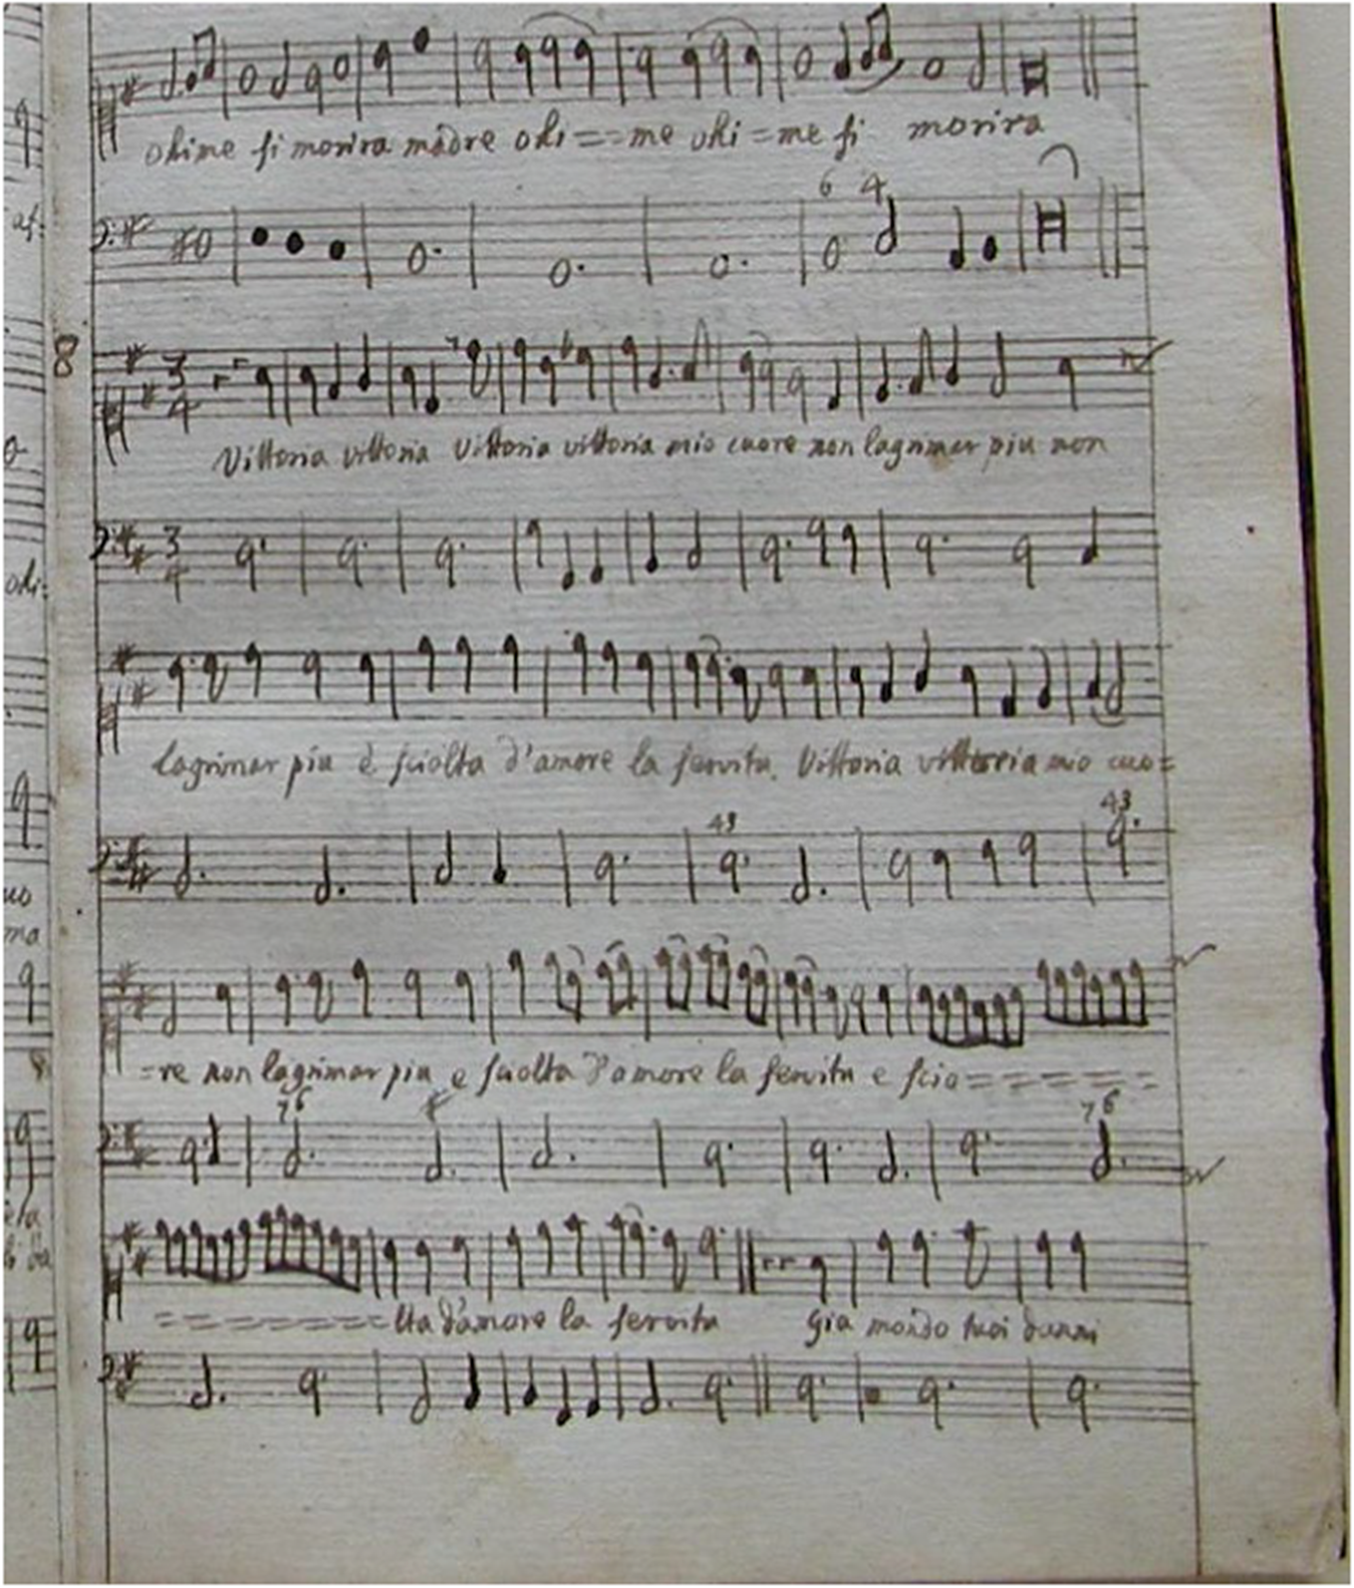 ohime si morira madre ohi==me ohi=me si morira
6 4
8
3 4
Vittoria vittoria Vittoria vittoria mio cuore non lagrimar piu non
3 4
lagrimar piu è sciolta d'amore la servitu. Vittoria vittoria mio cuo=
43 43
=re non lagrimar piu e sciolta d'amore la servitu e scio======
76 76
========lta d'amore la servitu Gia mondo tuoi danni